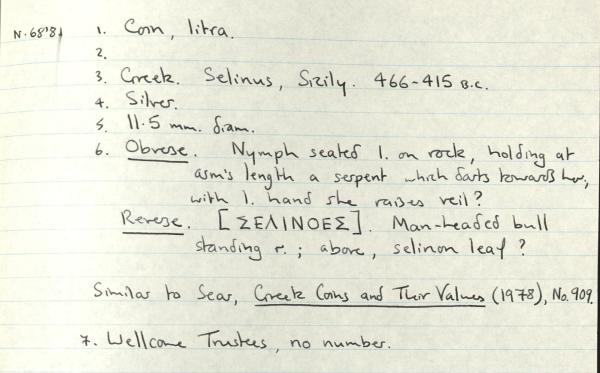 N.68'81
1. Coin, litra.
2.
3. Greek. Selinus, Sicily. 466-415 B.C.
4. Silver.
5. 11.5 mm. diam.
6. Obverse. Nymph seated l. on rock, holding at
arm's length a serpent which darts towards her,
with l. hand she raises veil?
Reverse. [ΣΕΛΙΝΟΕΣ]. Man-headed bull
standing r.; above, selinon leaf?
Similar to Sear, Greek Coins and Their Values (1978), No. 909.
7. Wellcome Trustees, no number.